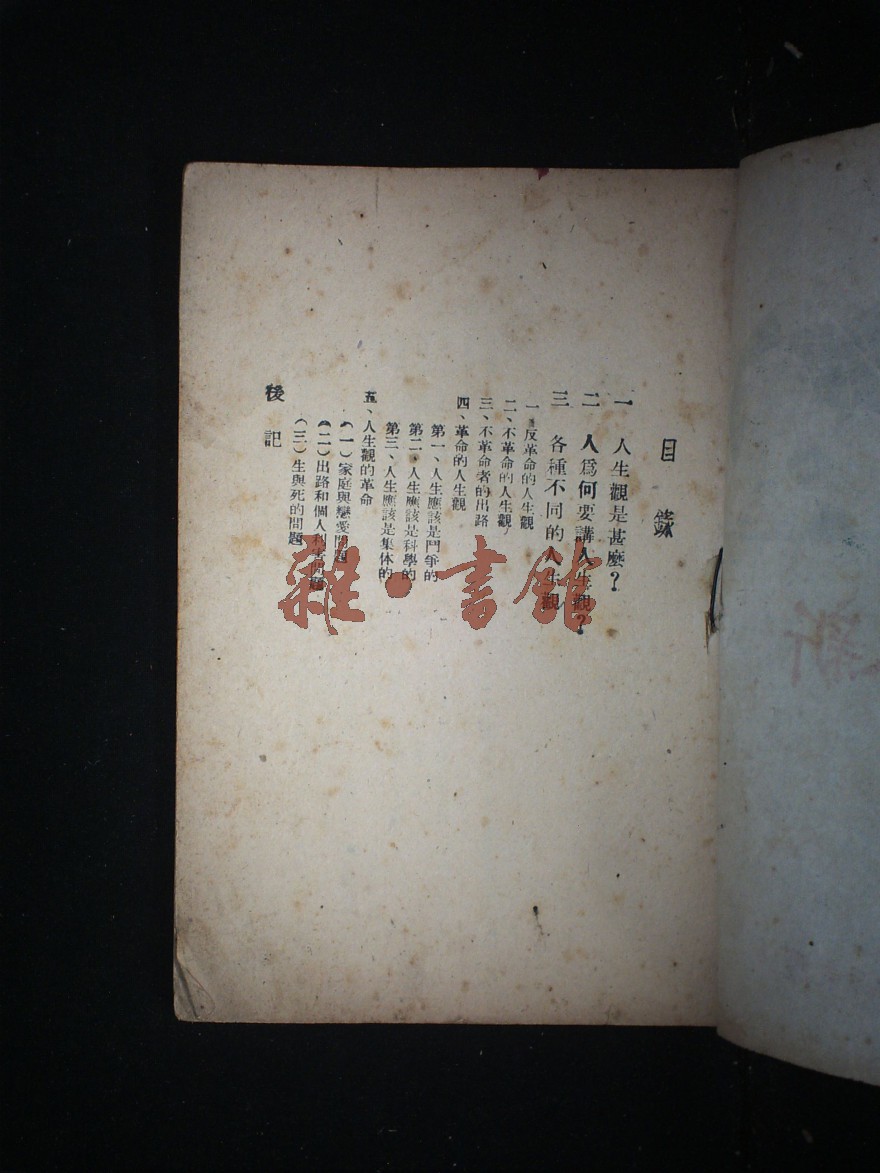 目錄
一 人生觀是甚麼？
二 人爲何要講人生觀？
三 各種不同的人生觀
一、反革命的人生觀
二、不革命的人生觀
三、不革命者的出路
四、革命的人生觀
第一、人生應該是鬥爭的
第二、人生應該是科學的
第三、人生應該是集体的
五、人生觀的革命
（一）家庭與戀愛問題
（二）出路和個人利害問題
（三）生與死的問題
後記
雜·書館
新